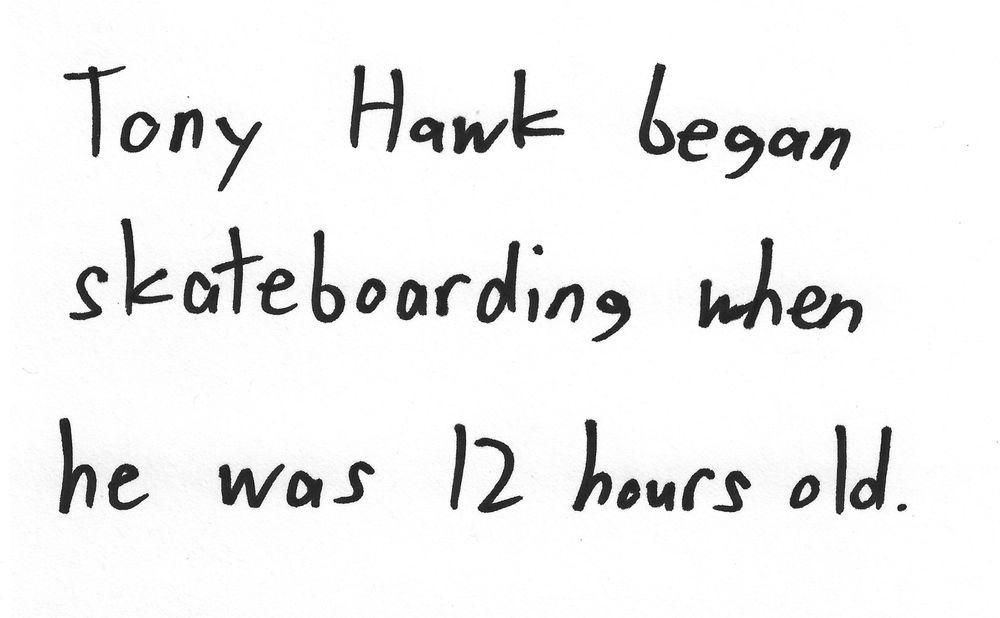 Tony Hawk began
skateboarding when
he was 12 hours old.